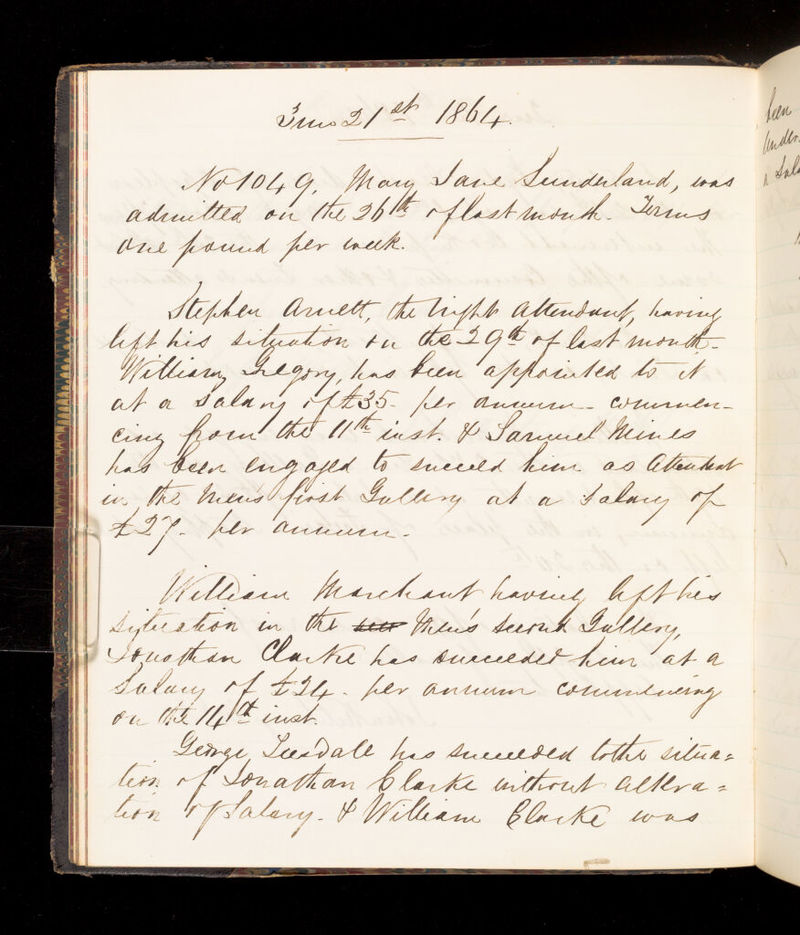 21st 1864.
No 1049. Mary Jane Sunderland, was
admitted on the 26th of last month. Terms
one pound per week.
Stephen Arnett, the Night Attendant, having
left his situation on the 29th of last month-
William Gregory, has been appointed to it
at a salary of £35. per annum- commen-
cing from the 11th inst. & Samuel Mines
has been engaged to succeed him as Attendant
in the Men's first Gallery at a salary of
£27. per annum.
William Marchant having left his
situation in the Men's second Gallery,
Jonathan Clarke has succeeded him at a
Salary of £24. per annum commencing
on the 14th inst.
George Teesdale has succeeded to the situa=
tion of Jonathan Clarke without altera=
tion of Salary. & William Clarke was
been
under
a Sala